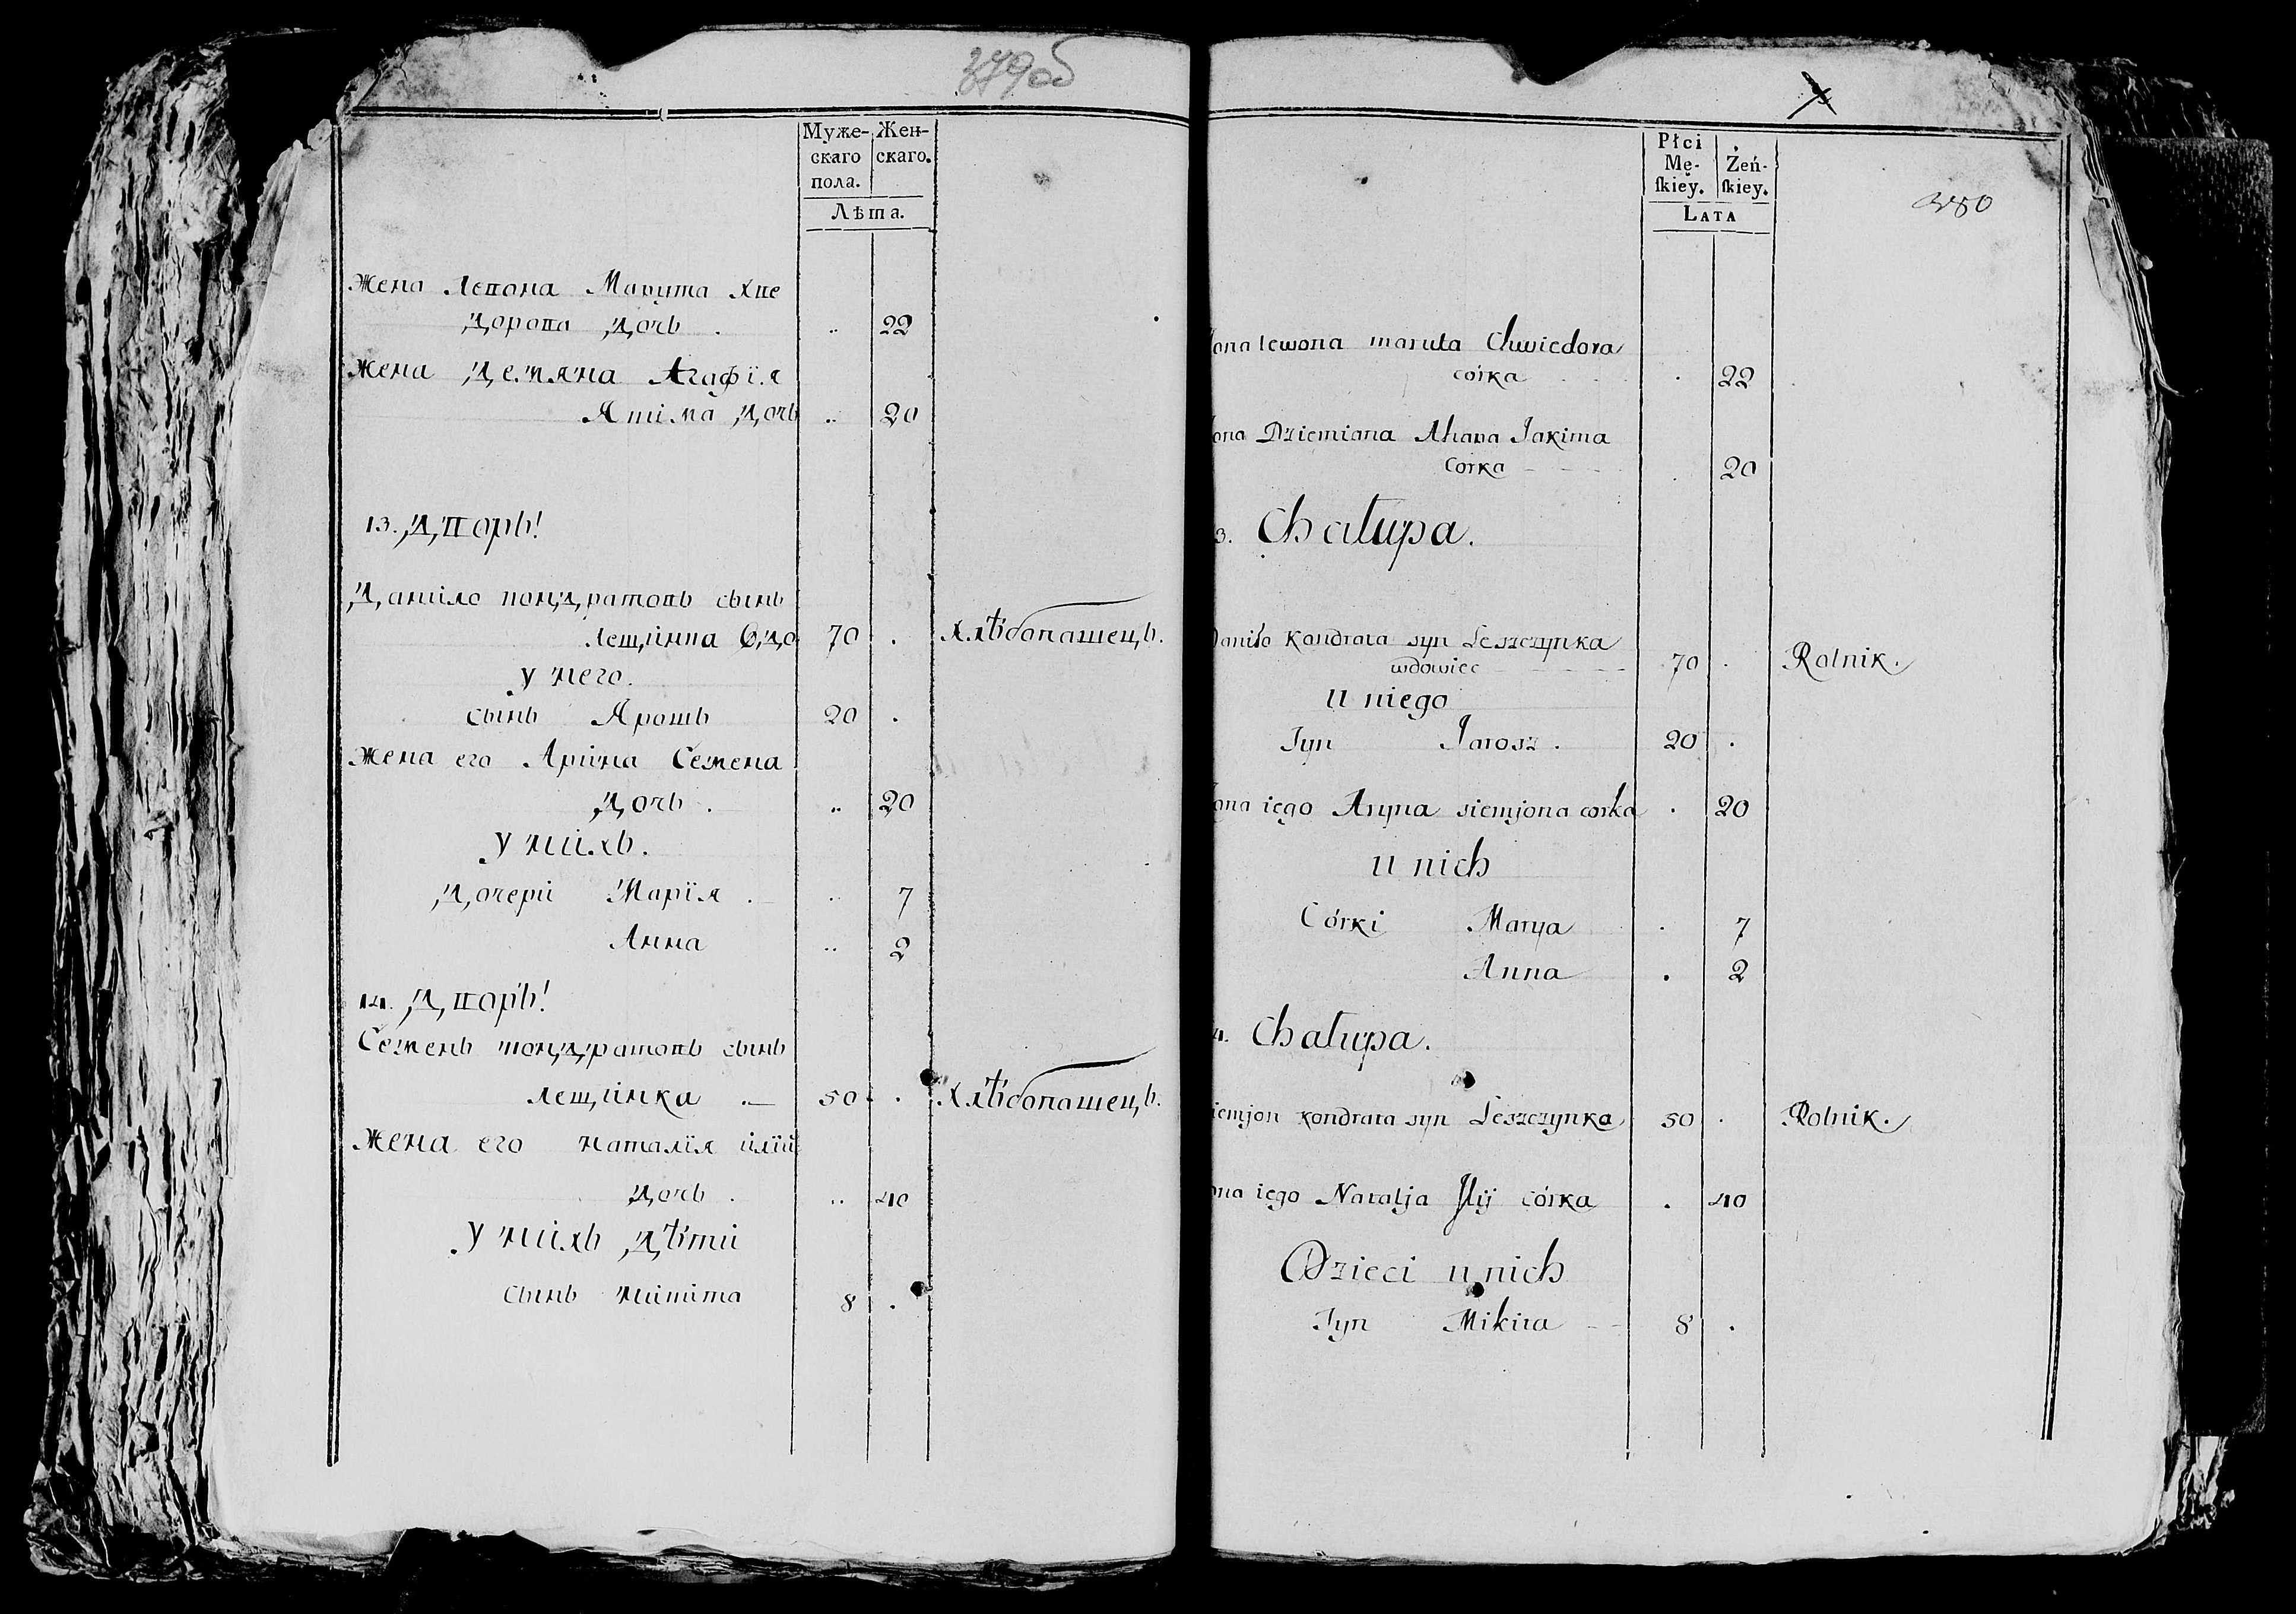 379об
Муже- Жен-
скаго скаго.
пола.
Лѣта.
Жена Левона Марута Хве
дорова дочь . .. 22
Жена Демяна Агафія
Якіма дочь .. 20
13. Дворъ!
Даніло кондратовъ сынъ
лещінка вдо 70 . Хлѣбопашецъ.
у него.
сынъ Ярошъ 20 .
Жена его Аріна Семена
дочь . .. 20
у ніхъ.
Дочері Марія . .. 7
Анна .. 2
14. Дворъ!
Семенъ кондратовъ сынъ
лещінка . 50 . Хлѣбопашецъ.
Жена его наталія іліи
дочь . .. 40
у ніхъ дѣті
сынъ нікіта 8 .
Płci
Mę- Żeń-
ſkiey. ſkiey.
LATA
380
ona lewona maruta Chwiedora
córka . 22
ona Dziemiana Ahapa Jakima
Corka . 20
3. Chałupa.
Daniło kondrata syn Leszczynka
wdowiec 70 . Rolnik.
u niego
Syn Jarosz . 20 .
ona iego Aryna siemjona corka . 20
u nich
Córki Marya . 7
Anna . 2
4. Chałupa.
iemjon kondrata syn Leszczynka 50 . Rolnik.
ona iego Natalja Ilij córka . 40
Dzieci u nich
Syn Mikita 8 .